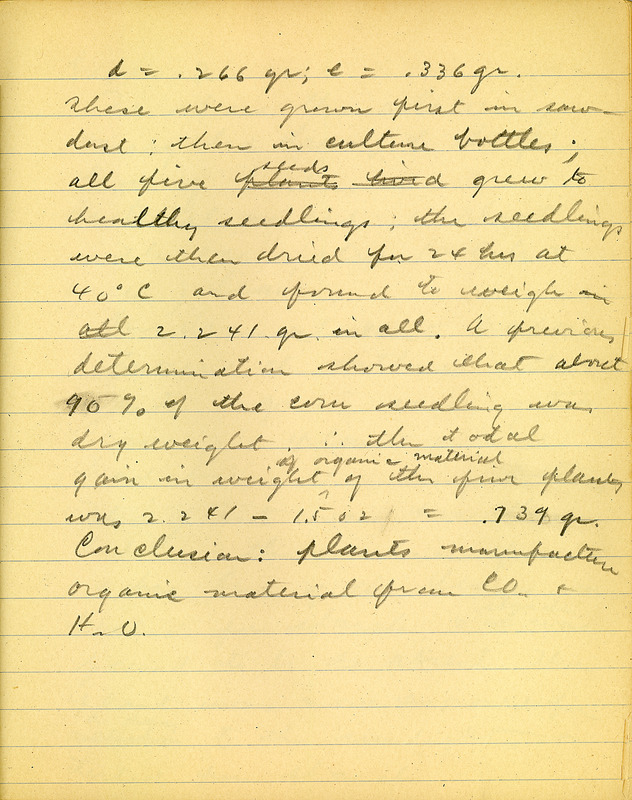 d = .266 gr; e = .336 gr.
These were grown first in saw-
dust; then in culture bottles;
seeds
all five plants lived grew to
healthy seedlings; the seedlings
were then dried for 24 hrs at
40° C and found to weigh in
all 2.241 gr. in all. A previous
determination showed that about
90 % of the corn seedling was
dry weight. ∴ the total
of organic material
gain in weight of the five plants
was 2.241 - 1.502 = .739 gr.
Conclusion: plants manufacture
organic material from CO2 +
H2O.